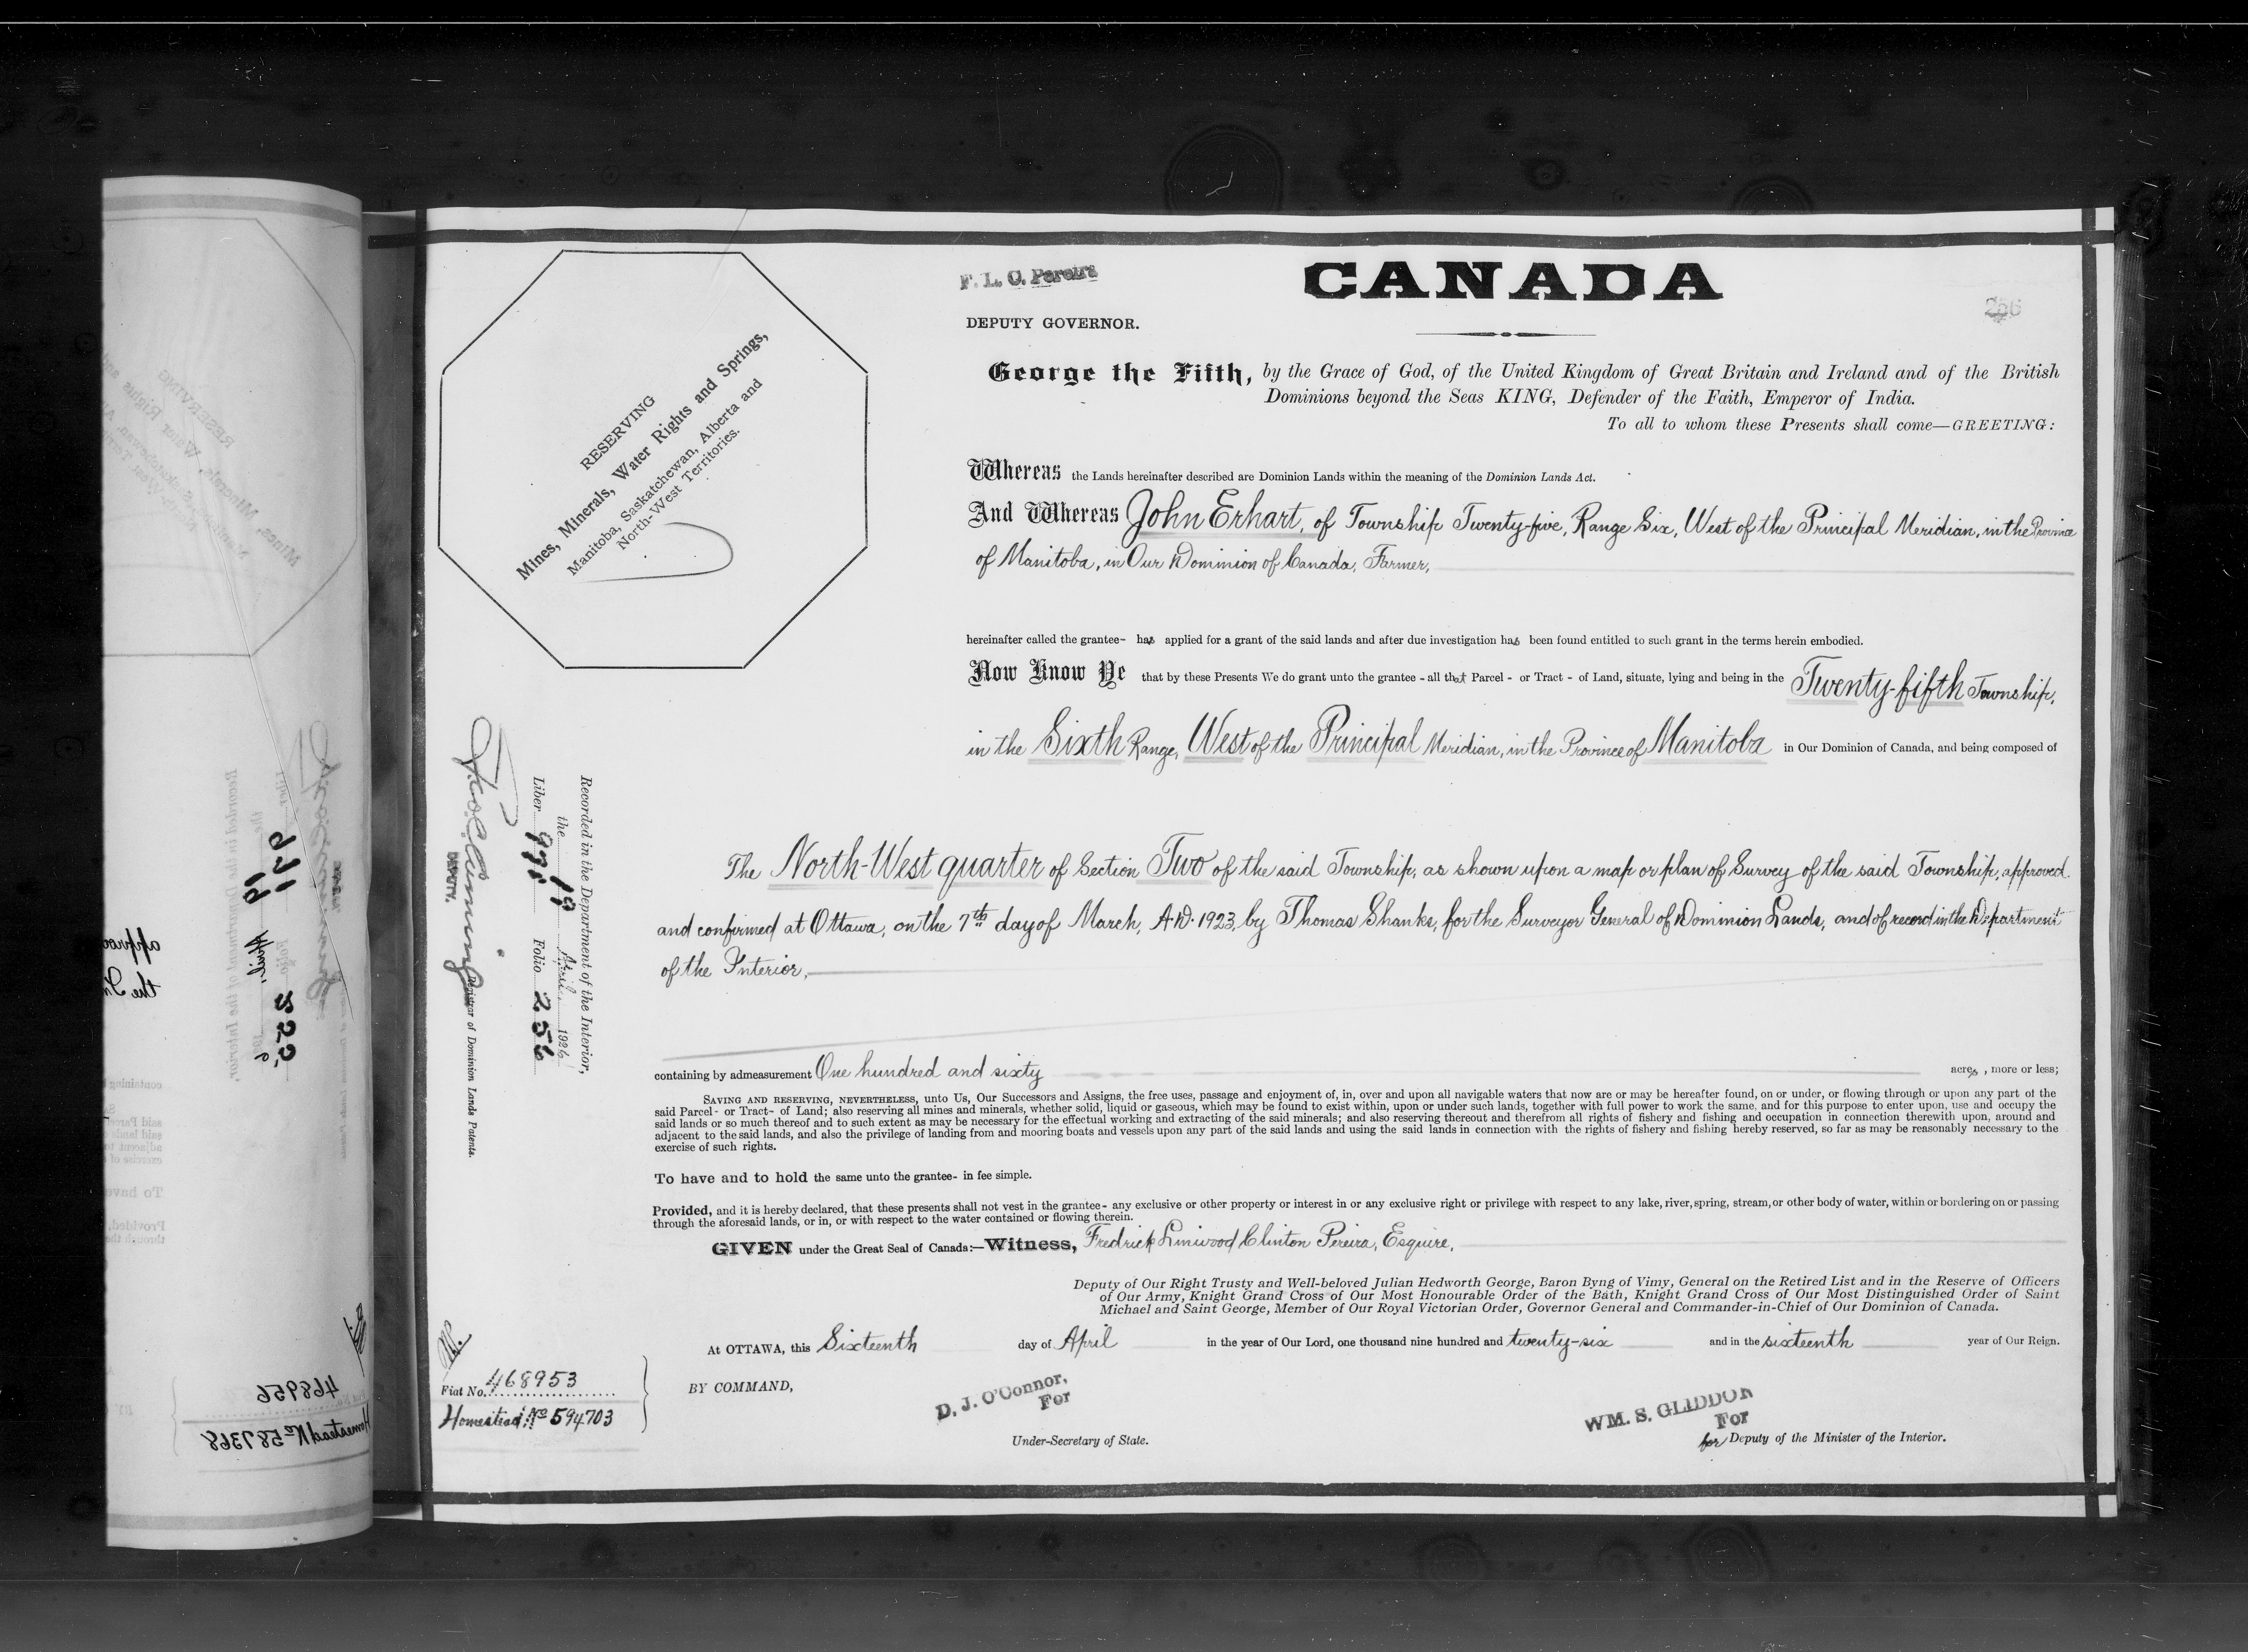 F. L. C. Pereira
CANADA
DEPUTY GOVERNOR.
256
George the Fifth, by the Grace of God, of the United Kingdom of Great Britain and Ireland and of the British
Dominions beyond the Seas KING, Defender of the Faith, Emperor of India.
To all to whom these Presents shall come—GREETING:
RESERVING
Mines, Minerals, Water Rights and Springs,
Manitoba, Saskatchewan, Alberta and
North-West Territories.
Whereas the Lands hereinafter described are Dominion Lands within the meaning of the Dominion Lands Act.
And Whereas John Erhart, of Township Twenty-five, Range Six, West of the Principal Meridian, in the Province
of Manitoba, in Our Dominion of Canada, Farmer,
hereinafter called the grantee- has applied for a grant of the said lands and after due investigation has been found entitled to such grant in the terms herein embodied.
Now Know Ye that by these Presents We do grant unto the grantee - all that Parcel - or Tract - of Land, situate, lying and being in the Twenty-fifth Township,
in the Sixth Range, West of the Principal Meridian, in the Province of Manitoba in Our Dominion of Canada, and being composed of
Recorded in the Department of the Interior,
the 19 April 1926
Liber Folio 256
DEPUTY.
Registrar of Dominion Lands Patents.
The North-West quarter of Section Two of the said Township, as shown upon a map or plan of Survey of the said Township, approved
and confirmed at Ottawa, on the 7th day of March, A.D. 1923, by Thomas Shanks, for the Surveyor General of Dominion Lands, and of record in the Department
of the Interior,
containing by admeasurement One hundred and sixty acres, more or less;
SAVING AND RESERVING, NEVERTHELESS, unto Us, Our Successors and Assigns, the free uses, passage and enjoyment of, in, over and upon all navigable waters that now are or may be hereafter found, on or under, or flowing through or upon any part of the
said Parcel- or Tract- of Land; also reserving all mines and minerals, whether solid, liquid or gaseous, which may be found to exist within, upon or under such lands, together with full power to work the same, and for this purpose to enter upon, use and occupy the
said lands or so much thereof and to such extent as may be necessary for the effectual working and extracting of the said minerals; and also reserving thereout and therefrom all rights of fishery and fishing and occupation in connection therewith upon, around and
adjacent to the said lands, and also the privilege of landing from and mooring boats and vessels upon any part of the said lands and using the said lands in connection with the rights of fishery and fishing hereby reserved, so far as may be reasonably necessary to the
exercise of such rights.
To have and to hold the same unto the grantee- in fee simple.
Provided, and it is hereby declared, that these presents shall not vest in the grantee- any exclusive or other property or interest in or any exclusive right or privilege with respect to any lake, river, spring, stream, or other body of water, within or bordering on or passing
through the aforesaid lands, or in, or with respect to the water contained or flowing therein.
GIVEN under the Great Seal of Canada:—Witness, Fredrick Linwood Clinton Pereira, Esquire,
Deputy of Our Right Trusty and Well-beloved Julian Hedworth George, Baron Byng of Vimy, General on the Retired List and in the Reserve of Officers
of Our Army, Knight Grand Cross of Our Most Honourable Order of the Bath, Knight Grand Cross of Our Most Distinguished Order of Saint
Michael and Saint George, Member of Our Royal Victorian Order, Governor General and Commander-in-Chief of Our Dominion of Canada.
At OTTAWA, this Sixteenth day of April in the year of Our Lord, one thousand nine hundred and twenty-six and in the sixteenth year of Our Reign.
Fiat No. 468953
Homestead No 594703
BY COMMAND,
D. J. O'Connor,
For
Under-Secretary of State.
WM. S. GLIDDON
For
for Deputy of the Minister of the Interior.
468956
Homestead No 587368